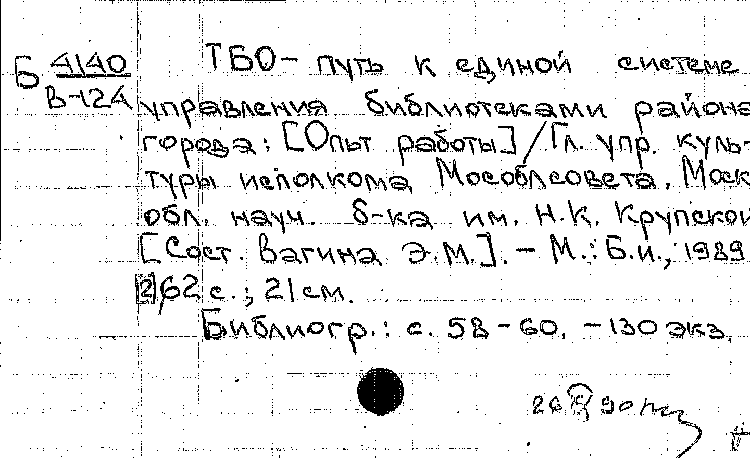 Б 4140
В-124
ТБО - путь к единой системе
управления библиотеками района,
города: [Опыт работы] / Гл. упр. куль-
туры исполкома Мособлсовета, Моск.
обл. науч. б-ка им. Н.К. Крупской
[Сост. Вагина Э.М.]. - М.: Б.и., 1989
62 с.; 21 см.
Библиогр.: с. 58-60. - 130 экз.